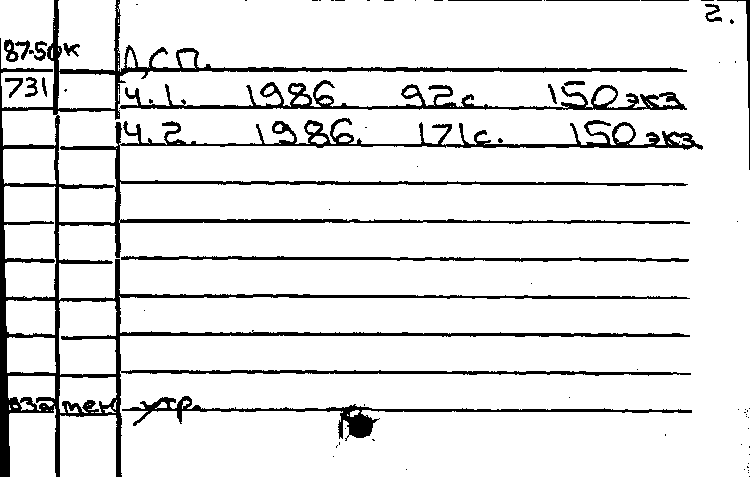 2.
87-50к ДСП.
731 ч.1. 1986. 92с. 150 экз
ч.2. 1986. 171с. 150 экз.
взамен утр.